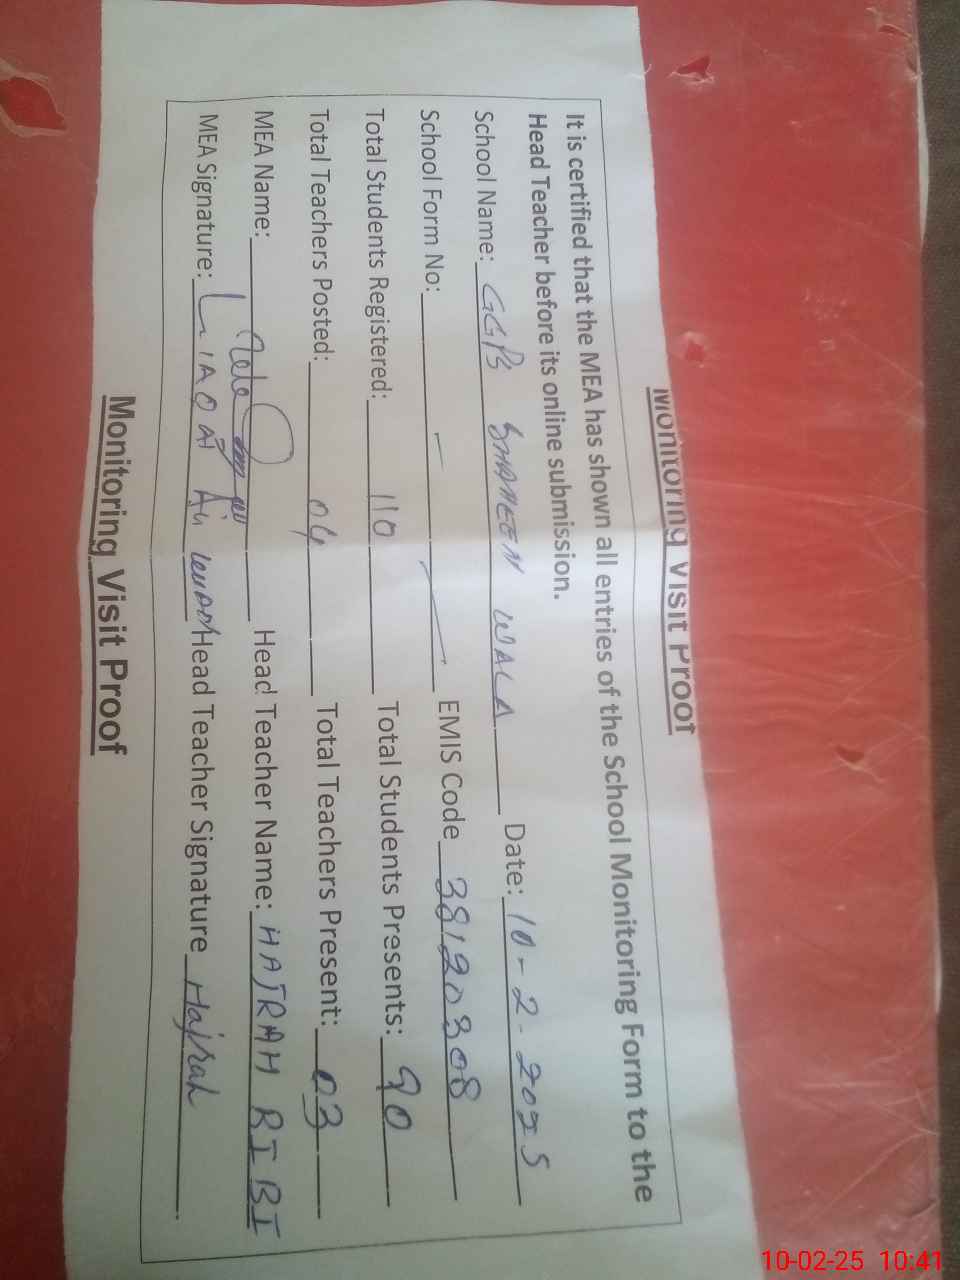 Monitoring Visit Proof
It is certified that the MEA has shown all entries of the School Monitoring Form to the
Head Teacher before its online submission.
School Name: GGPS SHAHEEN WALA Date: 10-2-2025
School Form No: EMIS Code 38120308
Total Students Registered: 110 Total Students Presents: 90
Total Teachers Posted: 04 Total Teachers Present: 03
MEA Name: Head Teacher Name: HAJRAH BIBI
MEA Signature: LIAQAT Ali Head Teacher Signature Hajrah
Monitoring Visit Proof
10-02-25 10:41